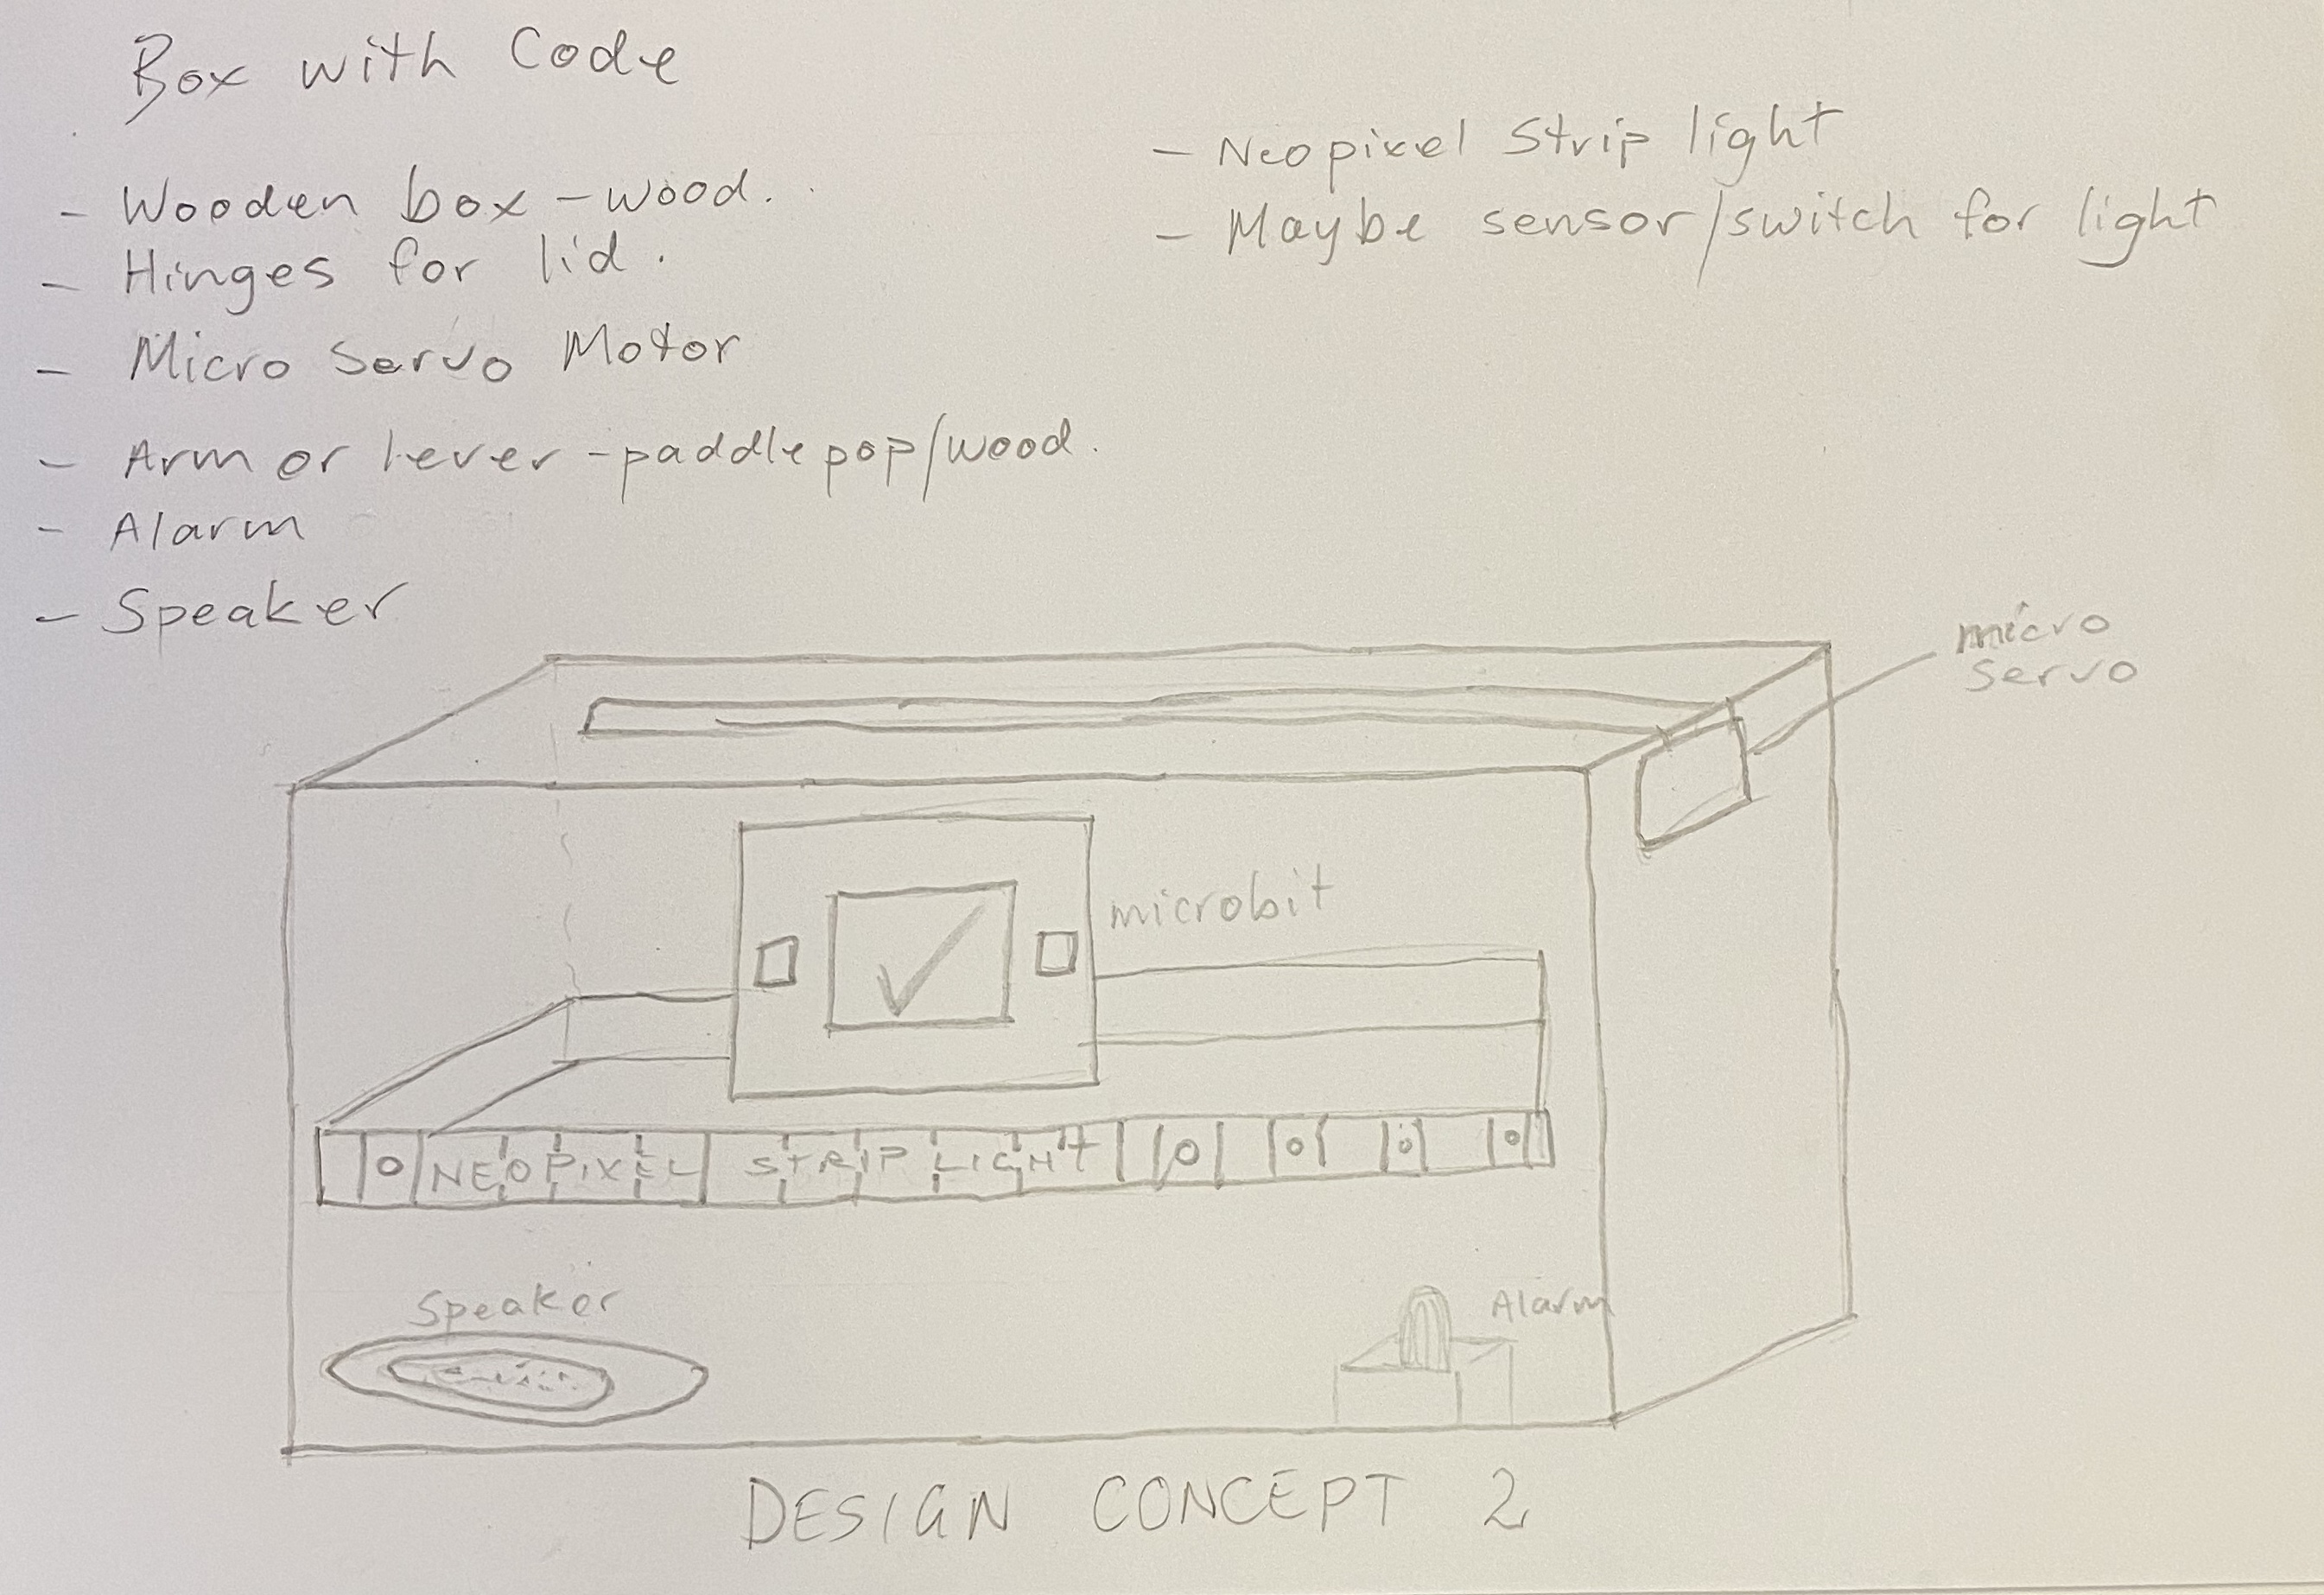 Box with Code
- Wooden box - wood.
- Hinges for lid.
- Micro Servo Motor
- Arm or lever - paddlepop/wood.
- Alarm
- Speaker
- Neopixel Strip light
- Maybe sensor/switch for light
micro
servo
microbit
NEOPIXEL STRIP LIGHT
Speaker
Alarm
DESIGN CONCEPT 2